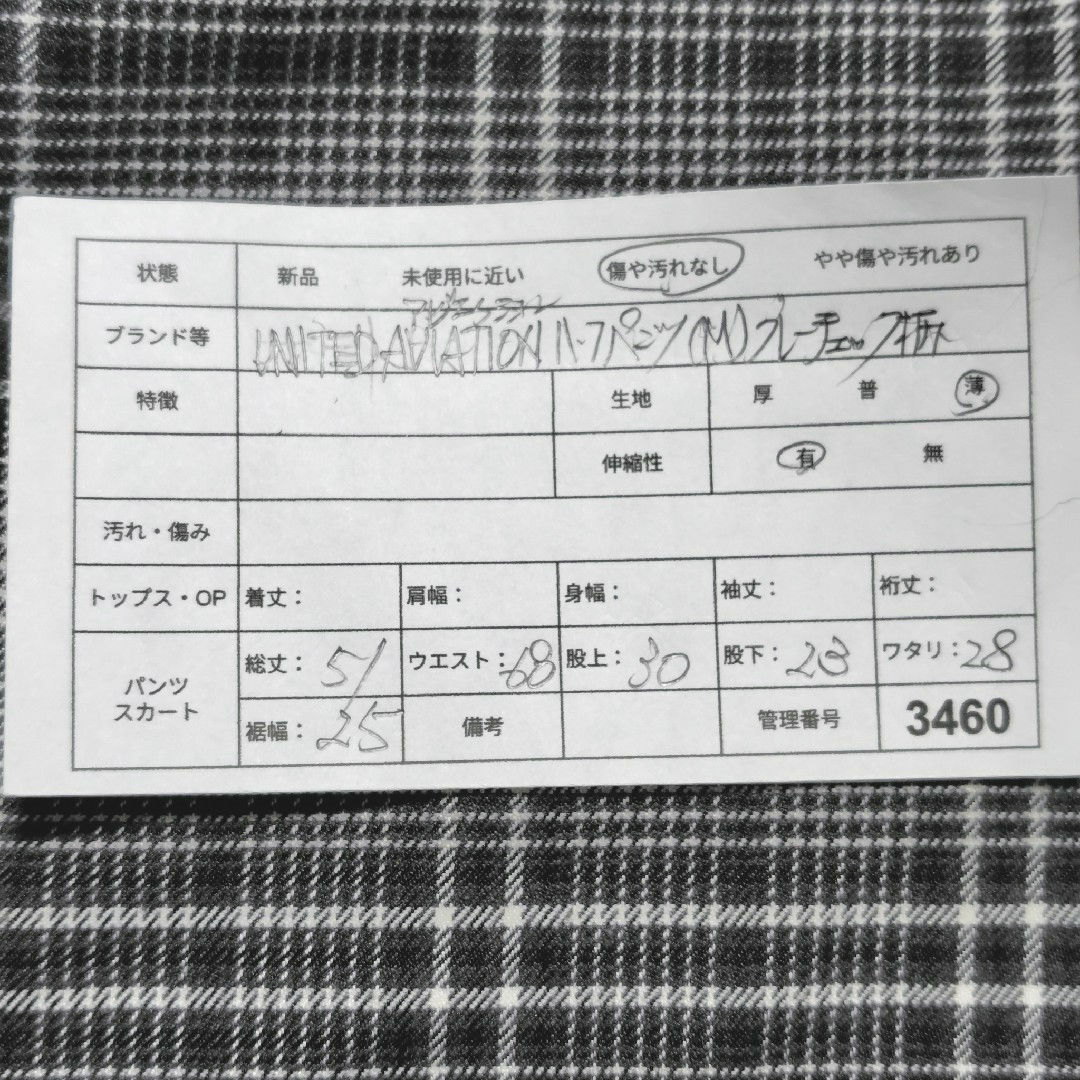 状態 新品 未使用に近い 傷や汚れなし やや傷や汚れあり
ブランド等 UNITED AVIATION ハーフパンツ(M)グレーチェック柄
特徴 生地 厚 普 薄
伸縮性 有 無
汚れ・傷み
トップス・OP 着丈: 肩幅: 身幅: 袖丈: 裄丈:
パンツ スカート 総丈: 51 ウエスト: 68 股上: 30 股下: 23 ワタリ: 28
裾幅: 25 備考 管理番号 3460